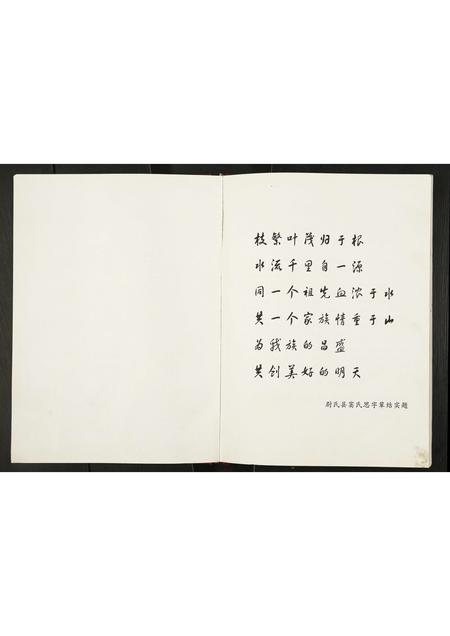 枝繁叶茂归于根
水流千里自一源
同一个祖先血浓于水
共一个家族情重于山
为我族的昌盛
共创美好的明天
尉氏县蒉氏思字辈结实题